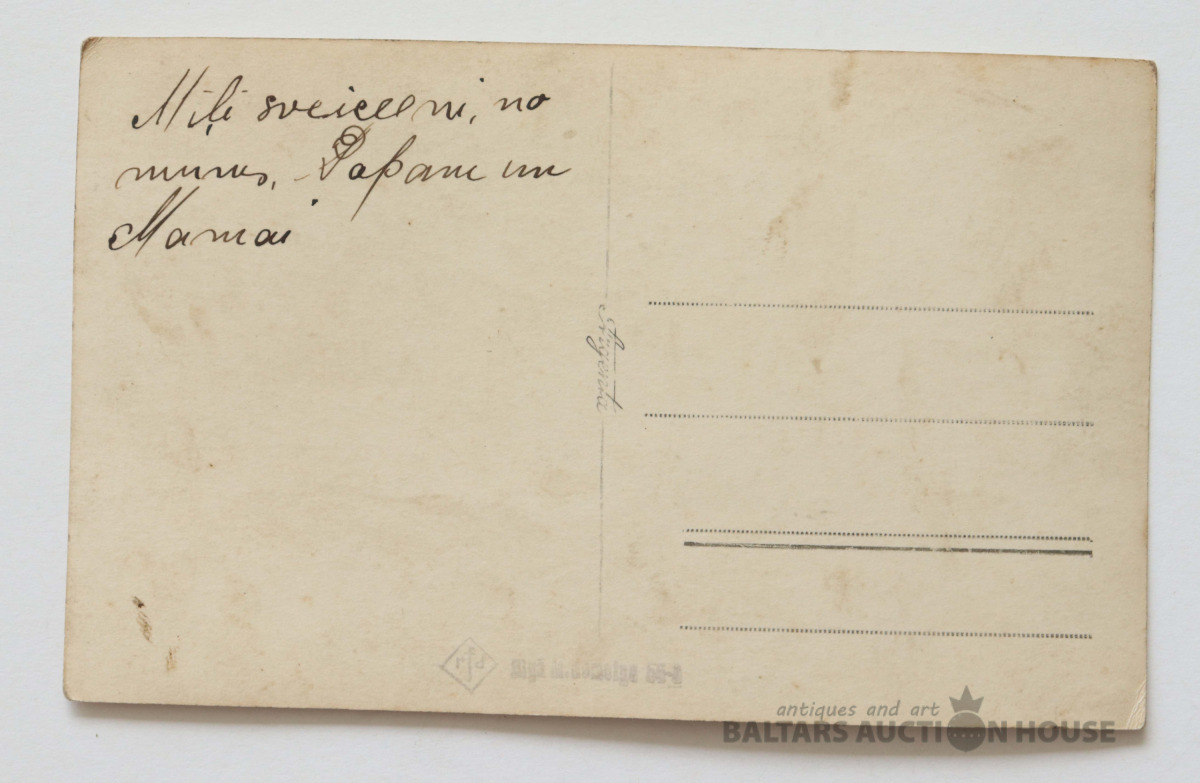 Miļi sveiceeni, no
mums, Papam un
Mamai
Argenta
antiques and art
BALTARS AUCTION HOUSE